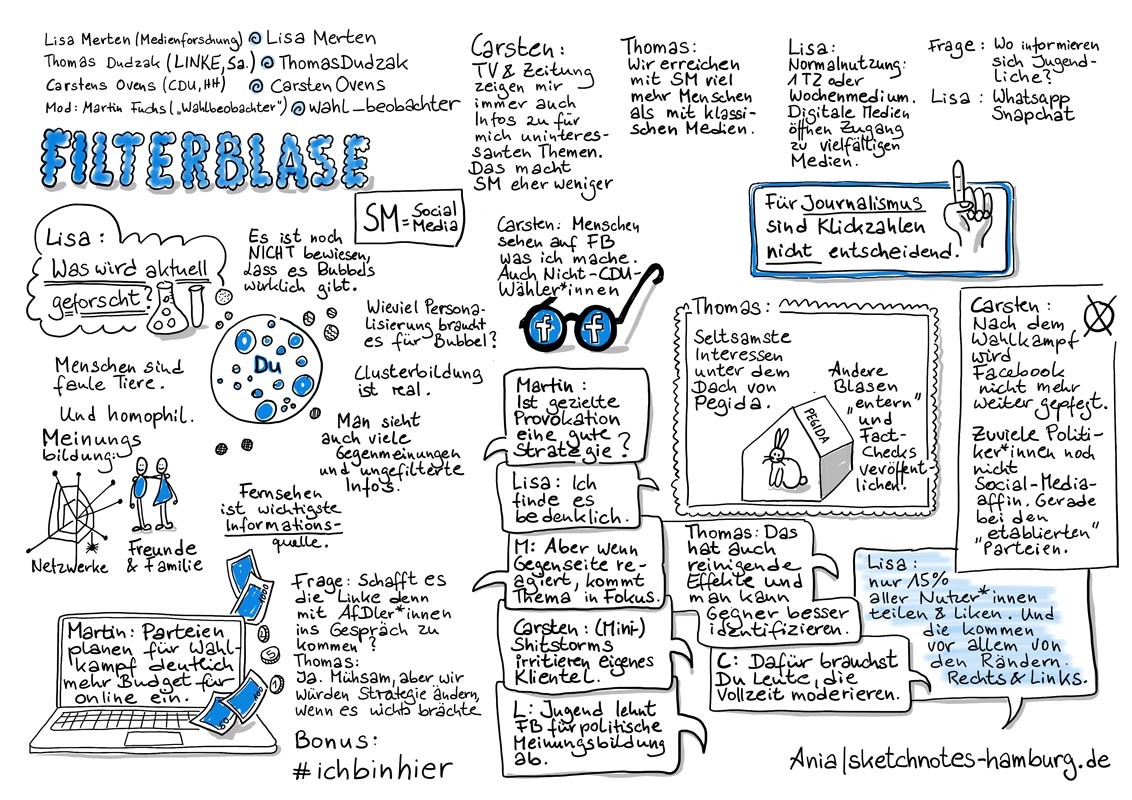 Lisa Merten (Medienforschung) @ Lisa Merten
Thomas Dudzak (LINKE, Sa.) @ ThomasDudzak
Carstens Ovens (CDU, HH) @ Carsten Ovens
Mod: Martin Fuchs („Wahlbeobachter") @ wahl_beobachter
FILTERBLASE
SM = Social
Media
Lisa:
Was wird aktuell
geforscht?
Es ist noch
NICHT bewiesen,
dass es Bubbels
wirklich gibt.
Wieviel Persona-
lisierung braucht
es für Bubbel?
Du
Clusterbildung
ist real.
Menschen sind
faule Tiere.
Und homophil.
Man sieht
auch viele
Gegenmeinungen
und ungefilterte
Infos.
Meinungs
bildung:
Netzwerke
Freunde
& Familie
Fernsehen
ist wichtigste
Informations-
quelle.
Martin: Parteien
planen für Wahl-
kampf deutlich
mehr Budget für
online ein.
Frage: Schafft es
die Linke denn
mit AfDler*innen
ins Gespräch zu
kommen?
Thomas:
Ja. Mühsam, aber wir
würden Strategie ändern,
wenn es nichts brächte
Bonus:
#ichbinhier
Carsten:
TV & Zeitung
zeigen mir
immer auch
Infos zu für
mich uninteres-
santen Themen.
Das macht
SM eher weniger
Carsten: Menschen
sehen auf FB
was ich mache.
Auch Nicht-CDU-
Wähler*innen
f f
Martin:
Ist gezielte
Provokation
eine gute
Strategie?
Lisa: Ich
finde es
bedenklich.
M: Aber wenn
Gegenseite re-
agiert, kommt
Thema in Fokus.
Carsten: (Mini-)
Shitstorms
irritieren eigenes
Klientel.
L: Jugend lehnt
FB für politische
Meinungsbildung
ab.
Thomas: Das
hat auch
reinigende
Effekte und
man kann
Gegner besser
identifizieren.
C: Dafür brauchst
Du Leute, die
Vollzeit moderieren.
Thomas:
Wir erreichen
mit SM viel
mehr Menschen
als mit klassi-
schen Medien.
Lisa:
Normalnutzung:
1 TZ oder
Wochenmedium.
Digitale Medien
öffnen Zugang
zu vielfältigen
Medien.
Frage: Wo informieren
sich Jugend-
liche?
Lisa: Whatsapp
Snapchat
Für Journalismus
sind Klickzahlen
nicht entscheidend.
Thomas:
Seltsamste
Interessen
unter dem
Dach von
Pegida.
PEGIDA
Andere
Blasen
„entern"
und
Fact-
Checks
veröffent-
lichen.
Carsten:
Nach dem
Wahlkampf
wird
Facebook
nicht mehr
weiter gepflegt.
Zuviele Politi-
ker*innen noch
nicht
Social-Media-
affin. Gerade
bei den
„etablierten"
Parteien.
Lisa:
nur 15%
aller Nutzer*innen
teilen & Liken. Und
die kommen
vor allem von
den Rändern.
Rechts & Links.
Ania|sketchnotes-hamburg.de